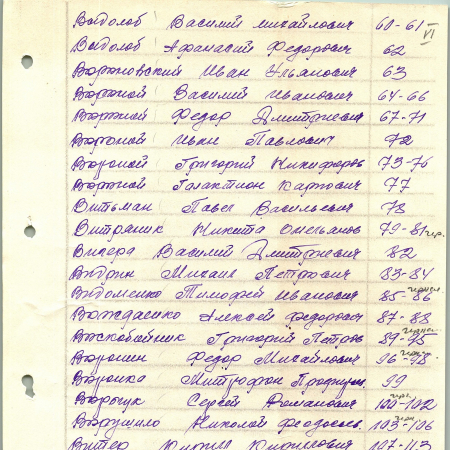 Выдолоб Василий Михайлович 60-61 VI
Выдолоб Афанасий Федорович 62
Иван Ульянович 63
Вороной Василий Иванович 64-66
Вороной Федор Дмитриевич 67-71
Вороной Иван Павлович 72
Вороной Григорий Никифоров 73-76
Вороной Галактион Карпович 77
Витьман Павел Васильевич 78
Витряник Никита 79-81 чер.
Вичера Василий Дмитриевич 82
Выдрин Михаил Петрович 83-84
Видоменко Тимофей Иванович 85-86
Вожданенко Алексей Федорович 87-88
Воскобойник Григорий Петров 89-95
Воронин Федор Михайлович 96-98
Воронка Митрофан 99
Сергей Романович 100-102
Николай Феодосьев 103-106
Витер Кирилл Кириллович 107-113